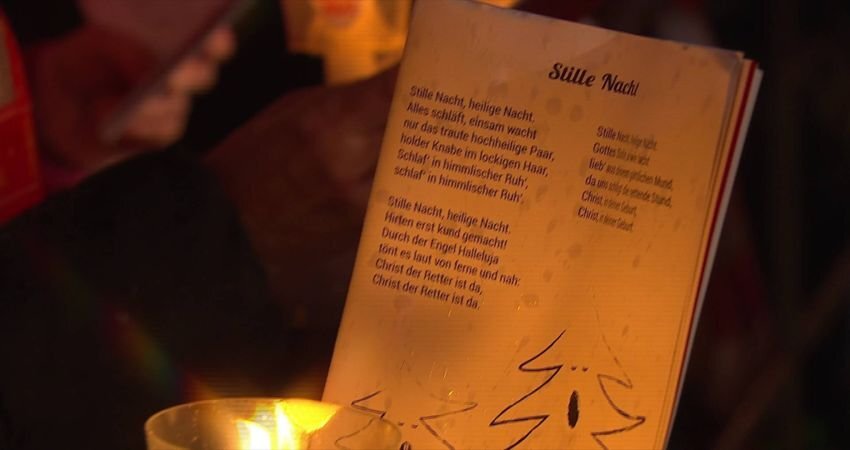 Stille Nacht
Stille Nacht, heilige Nacht.
Alles schläft, einsam wacht
nur das traute hochheilige Paar,
holder Knabe im lockigen Haar,
Schlaf' in himmlischer Ruh',
schlaf' in himmlischer Ruh'.
Stille Nacht, heilige Nacht.
Hirten erst kund gemacht!
Durch der Engel Halleluja
tönt es laut von ferne und nah:
Christ der Retter ist da,
Christ der Retter ist da.
Stille Nacht, heilige Nacht.
Gottes Sohn, o wie lacht
lieb' aus deinem göttlichen Mund,
da uns schlägt die rettende Stund,
Christ, in deiner Geburt,
Christ, in deiner Geburt.